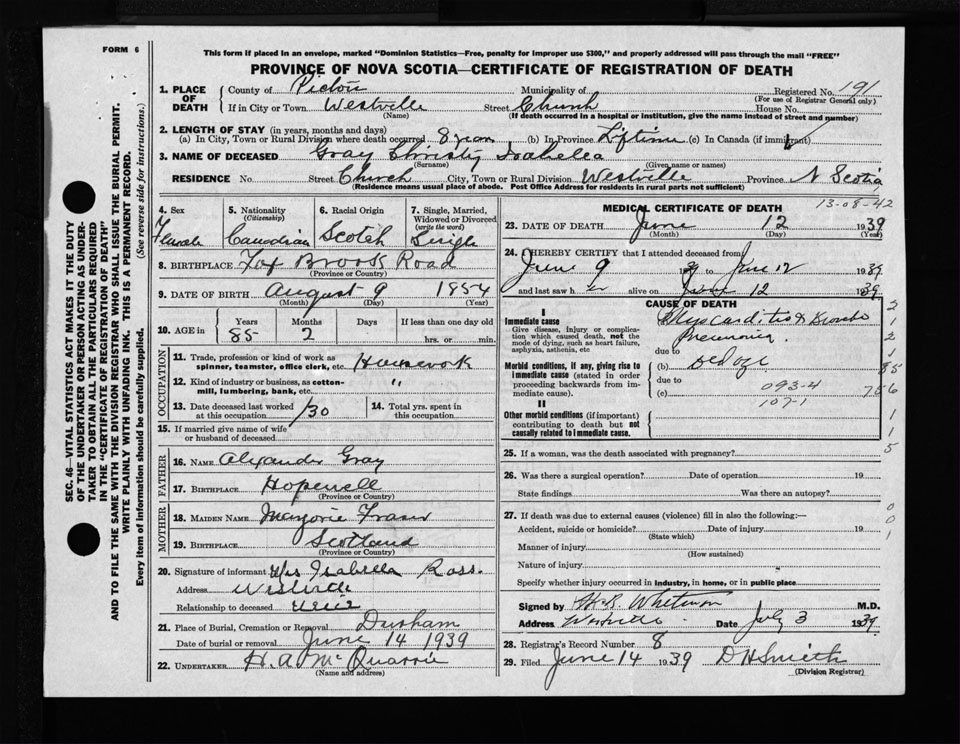 FORM 6
This form if placed in an envelope, marked "Dominion Statistics—Free, penalty for improper use $300," and properly addressed will pass through the mail "FREE"
PROVINCE OF NOVA SCOTIA—CERTIFICATE OF REGISTRATION OF DEATH
SEC. 46—VITAL STATISTICS ACT MAKES IT THE DUTY
OF THE UNDERTAKER OR PERSON ACTING AS UNDER-
TAKER TO OBTAIN ALL THE PARTICULARS REQUIRED
IN THE "CERTIFICATE OF REGISTRATION OF DEATH"
AND TO FILE THE SAME WITH THE DIVISION REGISTRAR WHO SHALL ISSUE THE BURIAL PERMIT.
WRITE PLAINLY WITH UNFADING INK. THIS IS A PERMANENT RECORD.
Every item of information should be carefully supplied. (See reverse side for instructions.)
1. PLACE OF DEATH County of Pictou Municipality of Registered No. 191
(For use of Registrar General only)
If in City or Town Westville Street Church House No.
(Name) (If death occurred in a hospital or institution, give the name instead of street and number)
2. LENGTH OF STAY (in years, months and days)
(a) In City, Town or Rural Division where death occurred 8 years (b) In Province Liftime (c) In Canada (if immigrant)
3. NAME OF DECEASED Gray Christy Isabella
(Surname) (Given name or names)
RESIDENCE No. Street Church City, Town or Rural Division Westville Province N Scotia
(Residence means usual place of abode. Post Office Address for residents in rural parts not sufficient)
13-08-42
4. Sex Female
5. Nationality (Citizenship) Canadian
6. Racial Origin Scotch
7. Single, Married, Widowed or Divorced (write the word) Single
8. BIRTHPLACE Fox Brook Road
(Province or Country)
9. DATE OF BIRTH August 9 1854
(Month) (Day) (Year)
10. AGE in Years 85 Months 2 Days If less than one day old hrs. or min.
OCCUPATION
11. Trade, profession or kind of work as spinner, teamster, office clerk, etc. Housework
12. Kind of industry or business, as cotton-mill, lumbering, bank, etc. "
13. Date deceased last worked at this occupation /30
14. Total yrs. spent in this occupation
15. If married give name of wife or husband of deceased
FATHER
16. NAME Alexander Gray
17. BIRTHPLACE Hopewell
(Province or Country)
MOTHER
18. MAIDEN NAME Marjorie Fraser
19. BIRTHPLACE Scotland
(Province or Country)
20. Signature of informant Mrs Isabella Ross.
Address Westville
Relationship to deceased
21. Place of Burial, Cremation or Removal Durham
Date of burial or removal June 14 1939
22. UNDERTAKER H. A. McQuarrie
(Name and address)
MEDICAL CERTIFICATE OF DEATH
23. DATE OF DEATH June 12 1939
(Month) (Day) (Year)
24. I HEREBY CERTIFY that I attended deceased from
June 9 39 to June 12 1939
and last saw her alive on June 12 1939
CAUSE OF DEATH
I
Immediate cause
Give disease, injury, or complication which caused death, not the mode of dying, such as heart failure, asphyxia, asthenia, etc
Myocarditis & Broncho
Pneumonia.
due to
Morbid conditions, if any, giving rise to immediate cause (stated in order proceeding backwards from immediate cause).
(b) Old age
due to
(c)
093-4
107-1
II
Other morbid conditions (if important) contributing to death but not causally related to immediate cause.
2
1
2
1
85
756
1
1
1
5
25. If a woman, was the death associated with pregnancy?
26. Was there a surgical operation? Date of operation 19
State findings Was there an autopsy?
27. If death was due to external causes (violence) fill in also the following:—
Accident, suicide or homicide? Date of injury 19
(State which)
Manner of injury
(How sustained)
Nature of injury
Specify whether injury occurred in industry, in home, or in public place
0
0
1
Signed by H.S. Whitman M.D.
Address Westville. Date July 3 1939
28. Registrar's Record Number 8
29. Filed June 14 1939 D H Smith
(Division Registrar)